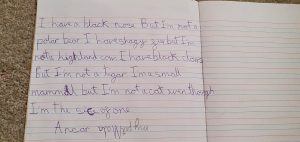 I have a black nose But I'm not a
polar bear I have shaggy fur but I'm
not a highland cow I have black claws
but I'm not a tigar I'm a small
mammal but I'm not a cat even though
I'm the size of one